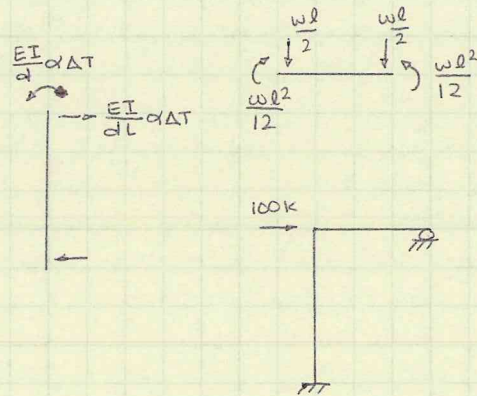 EI/d αΔT
EI/dL αΔT
wl/2 wl/2
wl²/12 wl²/12
100K